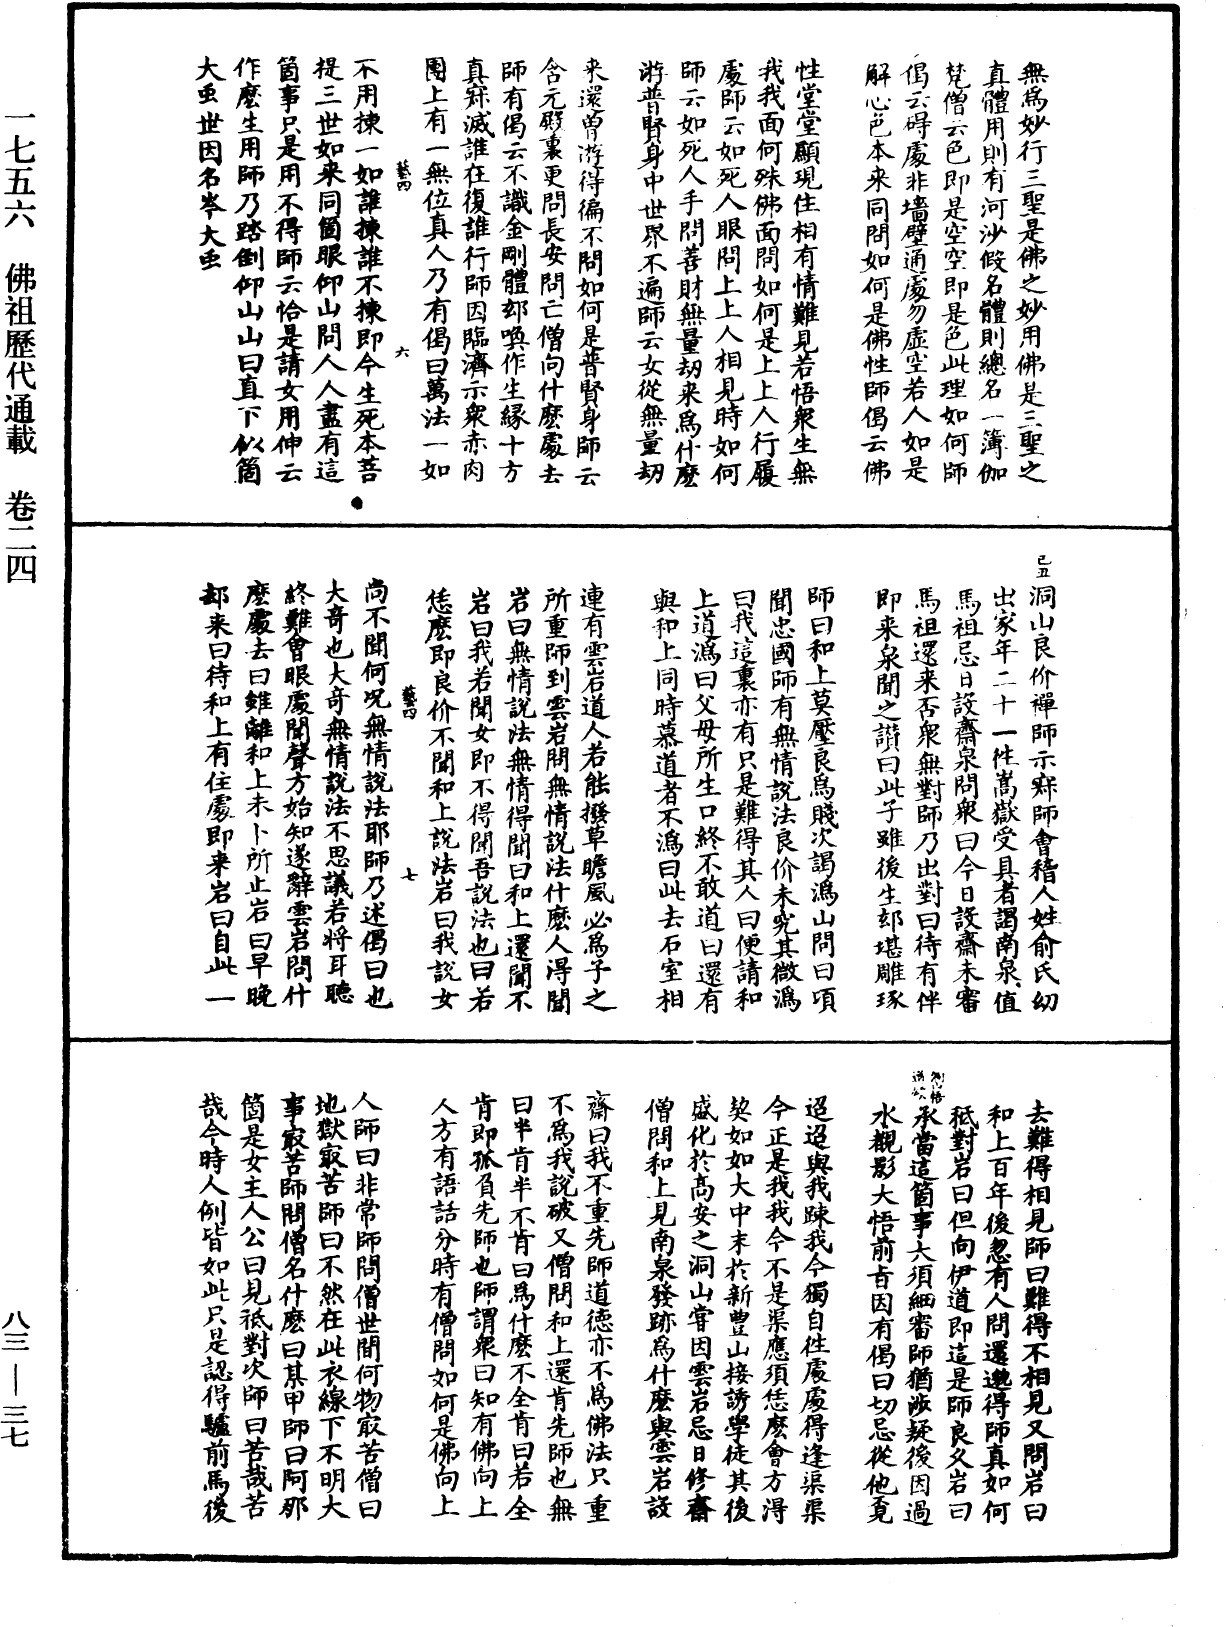 無爲妙行三聖是佛之妙用佛是三聖之
真體用則有河沙假名體則總名一簿伽
梵僧云色即是空空即是色此理如何師
偈云碍處非墻壁通處勿虛空若人如是
解心色本来同問如何是佛性師偈云佛
性堂堂顯現住相有情難見若悟衆生無
我我面何殊佛面問如何是上上人行履
處師云如死人眼問上上人相見時如何
師云如死人手問善財無量刼来爲什麽
游普賢身中世界不遍師云女從無量刼
来還曾游得徧不問如何是普賢身師云
含元殿裏更問長安問亡僧向什麽處去
師有偈云不識金剛體却喚作生緣十方
真寂滅誰在復誰行師因臨濟示衆亦肉
團上有一無位真人乃有偈曰萬法一如
藝四
六
不用揀一如誰揀誰不揀即今生死本菩
提三世如来同箇眼仰山問人人盡有這
箇事只是用不得師云恰是請女用伸云
作麽生用師乃踏倒仰山山曰直下似箇
大䖝世因名岑大䖝
己丑
洞山良价禪師示寂師會稽人姓俞氏幼
出家年二十一徃嵩嶽受具者謁南泉值
馬祖忌日設齋泉問衆曰今日設齋未審
馬祖還来否衆無對師乃出對曰待有伴
即来泉聞之讃曰此子雖後生却堪雕琢
師曰和上莫壓良爲賤次謁溈山問曰項
聞忠國師有無情說法良价未究其微溈
曰我這裏亦有只是難得其人曰便請和
上道溈曰父母所生口終不敢道曰還有
與和上同時慕道者不溈曰此去石室相
連有雲岩道人若能撥草瞻風必爲子之
所重師到雲岩問無情說法什麽人淂聞
岩曰無情說法無情得聞曰和上還聞不
岩曰我若聞女即不得聞吾說法也曰若
恁麽即良价不聞和上說法岩曰我說女
藝四
七
尚不聞何况無情說法耶師乃述偈曰也
大竒也大竒無情說法不思議若将耳聽
終難會眼處聞聲方始知遂辭雲岩問什
麽處去曰雖離和上未卜所止岩曰早晚
却来曰待和上有住處即来岩曰自此一
去難得相見師曰難得不相見又問岩曰
和上百年後忽有人問還邈得師真如何
秪對岩曰但向伊道即這是師良久岩曰
承當這箇事大須細審師猶涉疑後因過
水覩影大悟前㫖因有偈曰切忌從他覔
迢迢與我疎我今獨自徃處處得逢渠渠
今正是我我今不是渠應須恁麽會方淂
契如如大中末於新豐山接誘學徒其後
盛化於高安之洞山甞因雲岩忌日修齋
僧問和上見南泉發跡爲什麽與雲岩設
齋曰我不重先師道德亦不爲佛法只重
不爲我說破又僧問和上還肯先師也無
曰半肯半不肯曰爲什麽不全肯曰若全
肯即孤負先師也師謂衆曰知有佛向上
人方有語話分時有僧問如何是佛向上
人師曰非常師問僧世間何物㝡苦僧曰
地獄㝡苦師曰不然在此衣線下不明大
事㝡苦師問僧名什麽曰其甲師曰阿那
箇是女主人公曰見祇對次師曰苦哉苦
哉今時人例皆如此只是認得驢前馬後
一七五六　佛祖歷代通載　卷二四
八三—三七